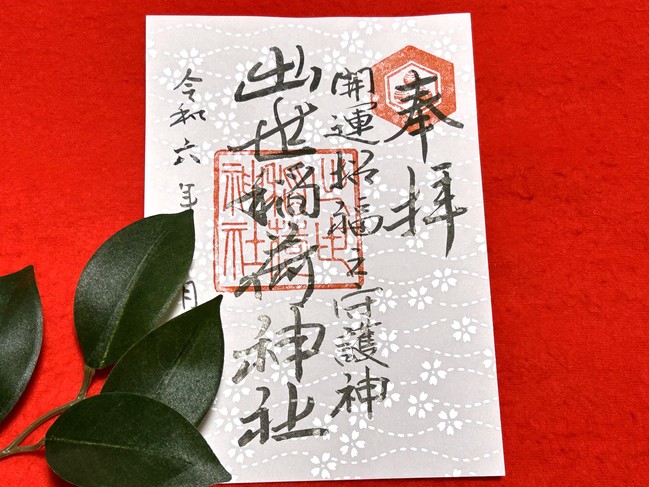 奉拝
開運招福之守護神
出世稲荷神社
出世稲荷神社
令和六年 月